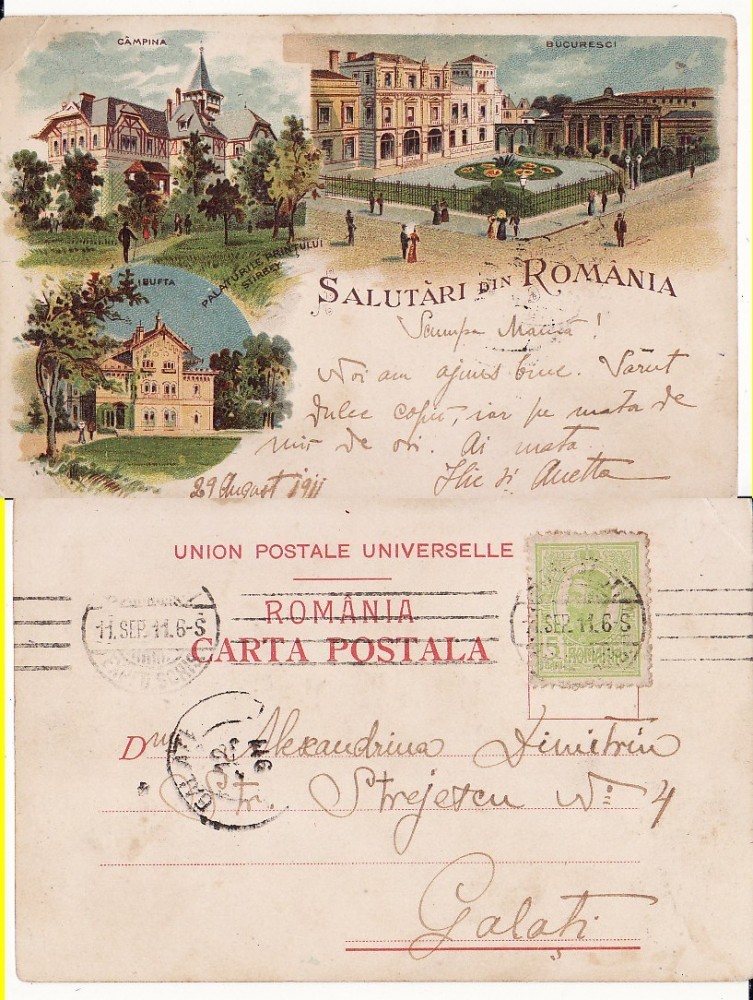 CÂMPINA
BUCURESCI
BUFTA
PALATURILE PRINTULUI
STIRBEY
SALUTĂRI DIN ROMÂNIA
Scumpa Maică!
Noi am ajuns bine. Sărut
dulce copii, iar pe mata de
mii de ori. Ai mata
Ilie și Anetta
29 August 1911
UNION POSTALE UNIVERSELLE
ROMÂNIA
CARTA POSTALA
11.SEP.11.6-S
11.SEP.11.6-S
5
ROMANIA
GALATI
Dnei Alexandrina Dimitriu
Str. Strejescu No 4
Galați